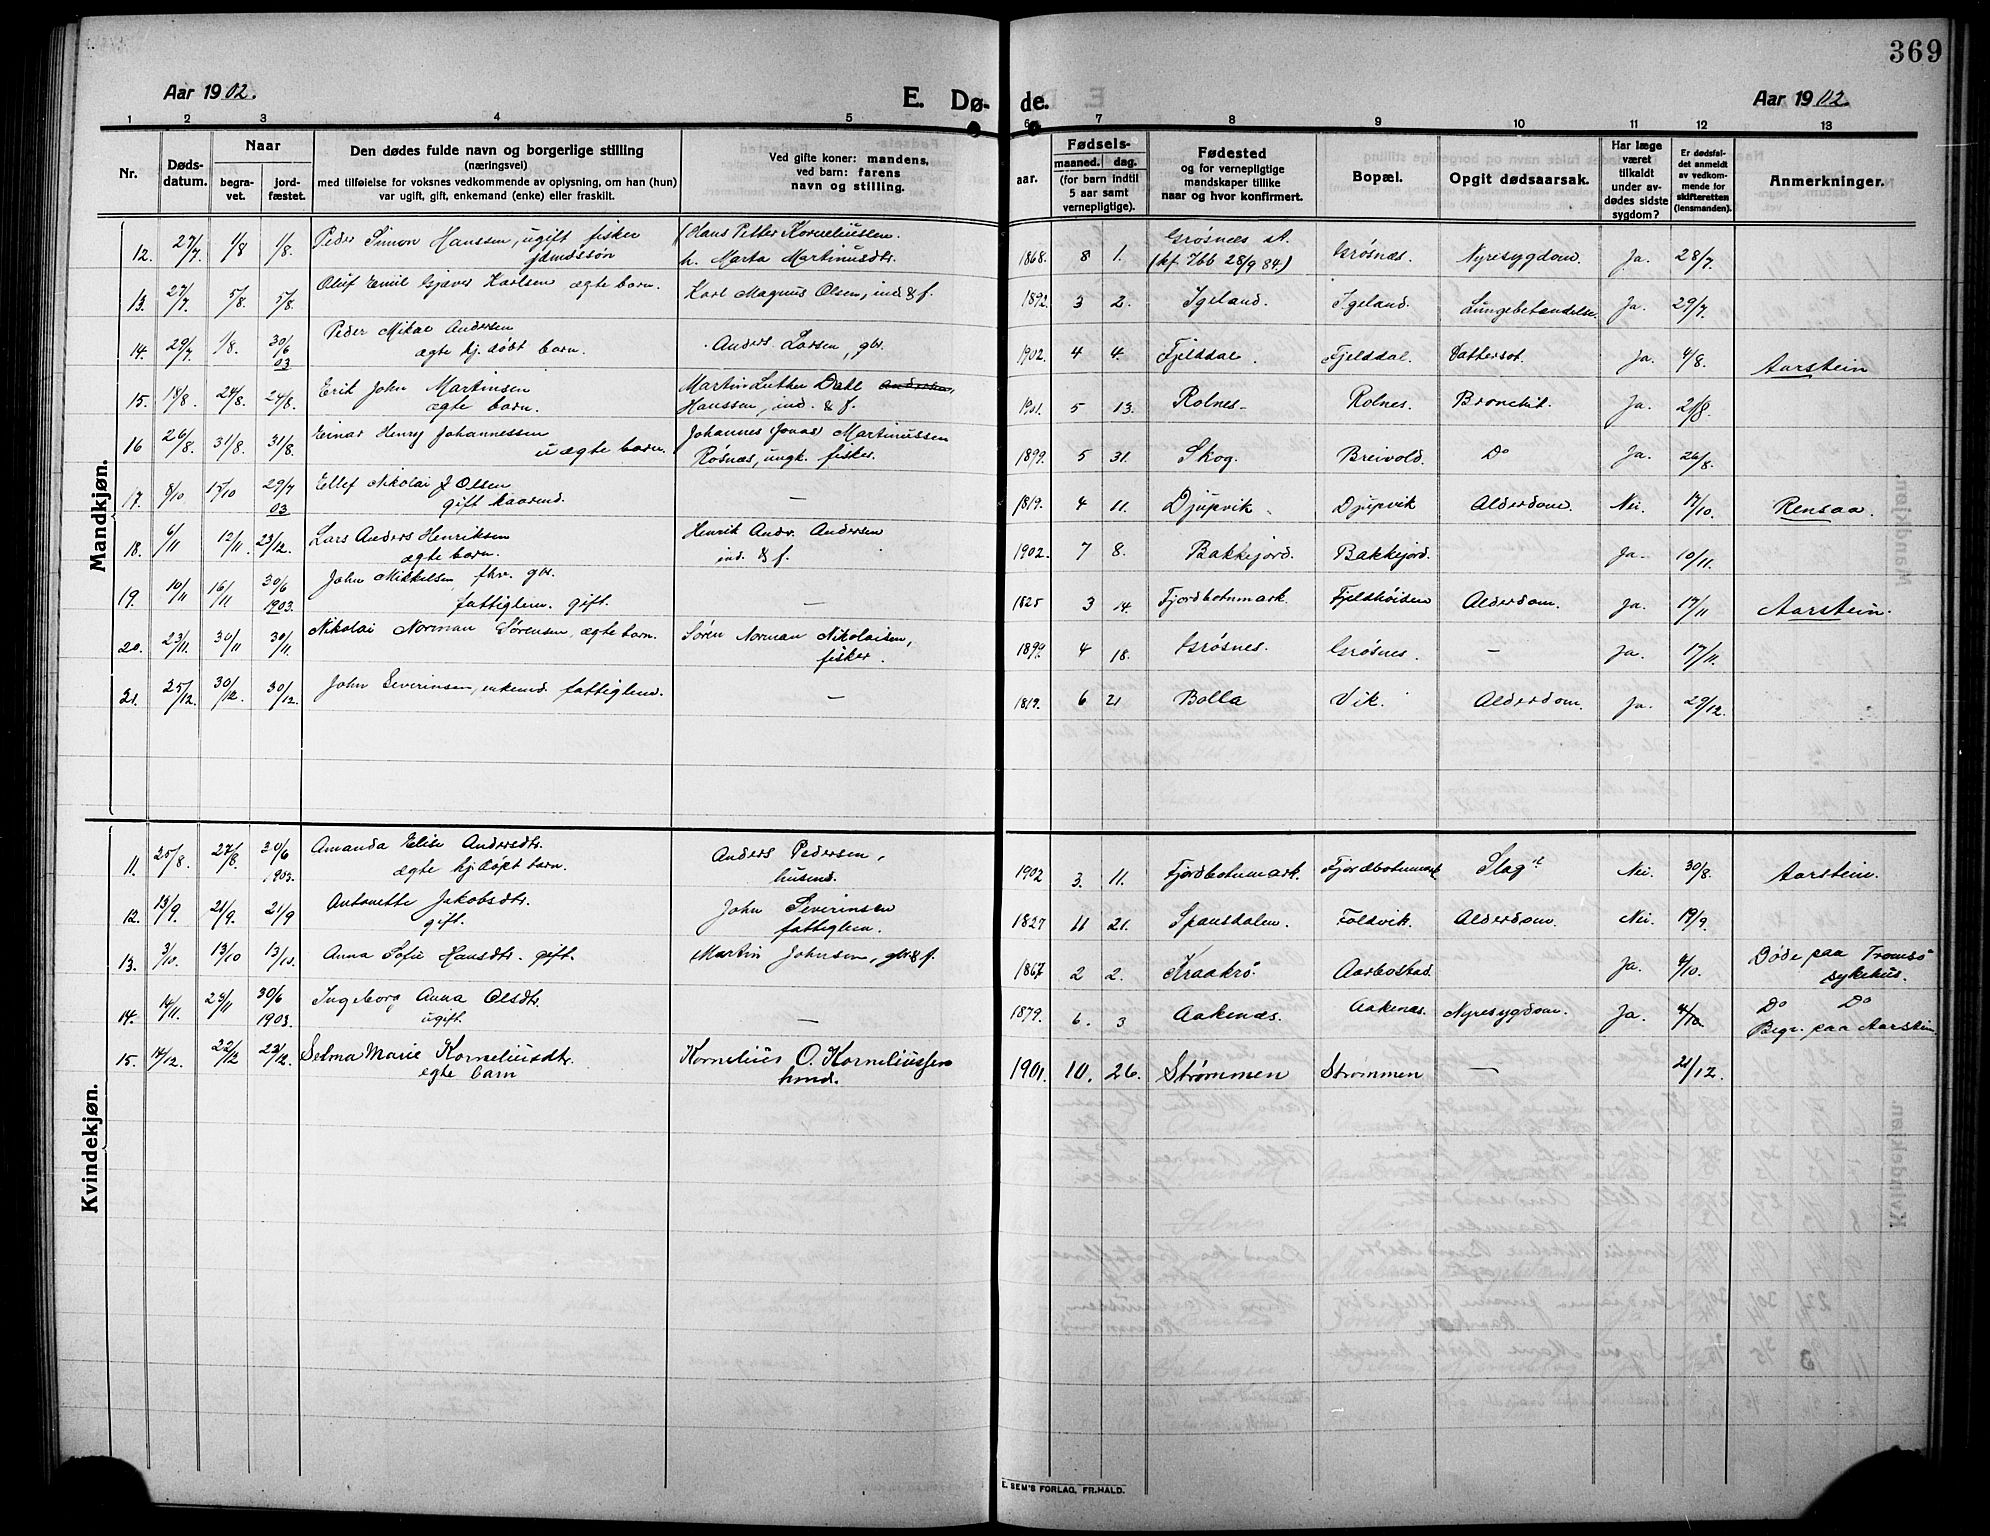 369
Aar 1902.
E. Dø- de.
Aar 1902.
1 2 3 4 5 6 7 8 9 10 11 12 13
Nr.
Dødsdatum.
Naar
begravet.
jordfæstet.
Den dødes fulde navn og borgerlige stilling
(næringsvei)
med tilføielse for voksnes vedkommende av oplysning, om han (hun)
var ugift, gift, enkemand (enke) eller fraskilt.
Ved gifte koner: mandens,
ved barn: farens
navn og stilling.
Fødsels-
aar.
maaned. dag.
(for barn indtil
5 aar samt
vernepligtige).
Fødested
og for vernepligtige
mandskaper tillike
naar og hvor konfirmert.
Bopæl.
Opgit dødsaarsak.
Har læge
været
tilkaldt
under av-
dødes sidste
sygdom?
Er dødsfal-
det anmeldt
av vedkom-
mende for
skifteretten
(lensmanden).
Anmerkninger.
Mandkjøn.
12. 27/7 1/8 1/8. Peder Simon Hanssen, ugift fisker (Hans Petter Korneliussen 1868. 8 1. Grøsnes st. Grøsnes. Nyresygdom. Ja. 28/7.
h. Marta Martinusdtr. (kf. Ibb 28/9 84.)
13. 27/7. 5/8. 5/8. Oluf Emil Gjæver Karlsen ægte barn. Karl Magnus Olsen, ind & f. 1892. 3 2. Igeland. Igeland. Lungebetændelse. Ja. 29/7.
14. 29/7 1/8. 30/6 03 Peder Mikal Andersen Anders Larsen, gbr. 1902. 4 4. Fjelddal. Fjelddal. Vattersot. Ja. 4/8. Aarstein
ægte hj. døbt barn.
15. 18/8. 24/8. 24/8. Erik John Martinsen Martin Luther Dahl Andersen, 1901. 5 13. Rolnes. Rolnes. Bronchit. Ja. 21/8.
ægte barn. Hanssen, ind. & f.
16 26/8. 31/8. 31/8. Einar Henry Johannessen Johannes (Jonas) Martinussen 1899. 5 31. Skog. Breivold. Do Ja. 26/8.
uægte barn. Røsnæs, ungk. fisker.
17. 8/10 15/10 29/7 03 Ellef Nikolai J Olsen — 1819. 4 11. Djupvik Djupvik Alderdom. Nei. 17/10. Rensaa.
gift kaarmd.
18. 6/11 12/11. 23/12. Lars Anders Henriksen Henrik Andr. Andersen 1902. 7 8. Bakkejord. Bakkejord. Ja. 10/11.
ægte barn. ind. & f.
19. 10/11 16/11 30/6 1903. John Mikkelsen, fhv. gbr. — 1825 3 14. Fjordbotnmark. Fjeldhøisen Alderdom. Ja. 17/11 Aarstein.
fattiglem. gift.
20. 23/11. 30/11 30/11. Nikolai Norman Sørensen, ægte barn. Søren Norman Nikolaisen, 1899. 4 18. Grøsnes. Grøsnes. — Ja. 17/11.
fisker.
21. 25/12. 30/12. 30/12. John Severinsen, enkemd. fattiglem. — 1819. 6 21 Bolla Vik. Alderdom. Ja. 29/12.
Kvindekjøn.
11. 25/8. 27/8. 30/6 1903. Amanda Elise Andersdtr. Anders Pedersen, 1902 3. 11. Fjordbotnmark. Fjordbotnmark. Slag Nei. 30/8. Aarstein.
ægte hj. døpt barn. husmd.
12. 13/9. 21/9. 21/9 Antonette Jakobsdtr. John Severinsen 1827 11 21. Spansdalen. Foldvik. Alderdom. Nei 19/9.
gift. fattiglem.
13. 3/10. 13/10 13/10. Anna Sofie Hansdtr. gift. Martin Johnsen, gbr & f. 1867 2 2. Kraakrø. Aarbostad. Ja. 4/10. Døde paa Tromsø
sykehus.
14. 14/11. 23/11 30/6 1903. Ingeborg Anna Olsdtr. — 1879. 6. 3 Aakenæs. Aakenæs. Nyresygdom. Ja. 4/12 Do Do
ugift. Begr. paa Aarstein.
15. 14/12. 22/12 22/12. Selma Marie Korneliusdtr. Kornelius O. Korneliussen 1901. 10. 26. Strømmen Strømmen — 21/12.
egte barn hmd.
E. SEM'S FORLAG, FR.HALD.